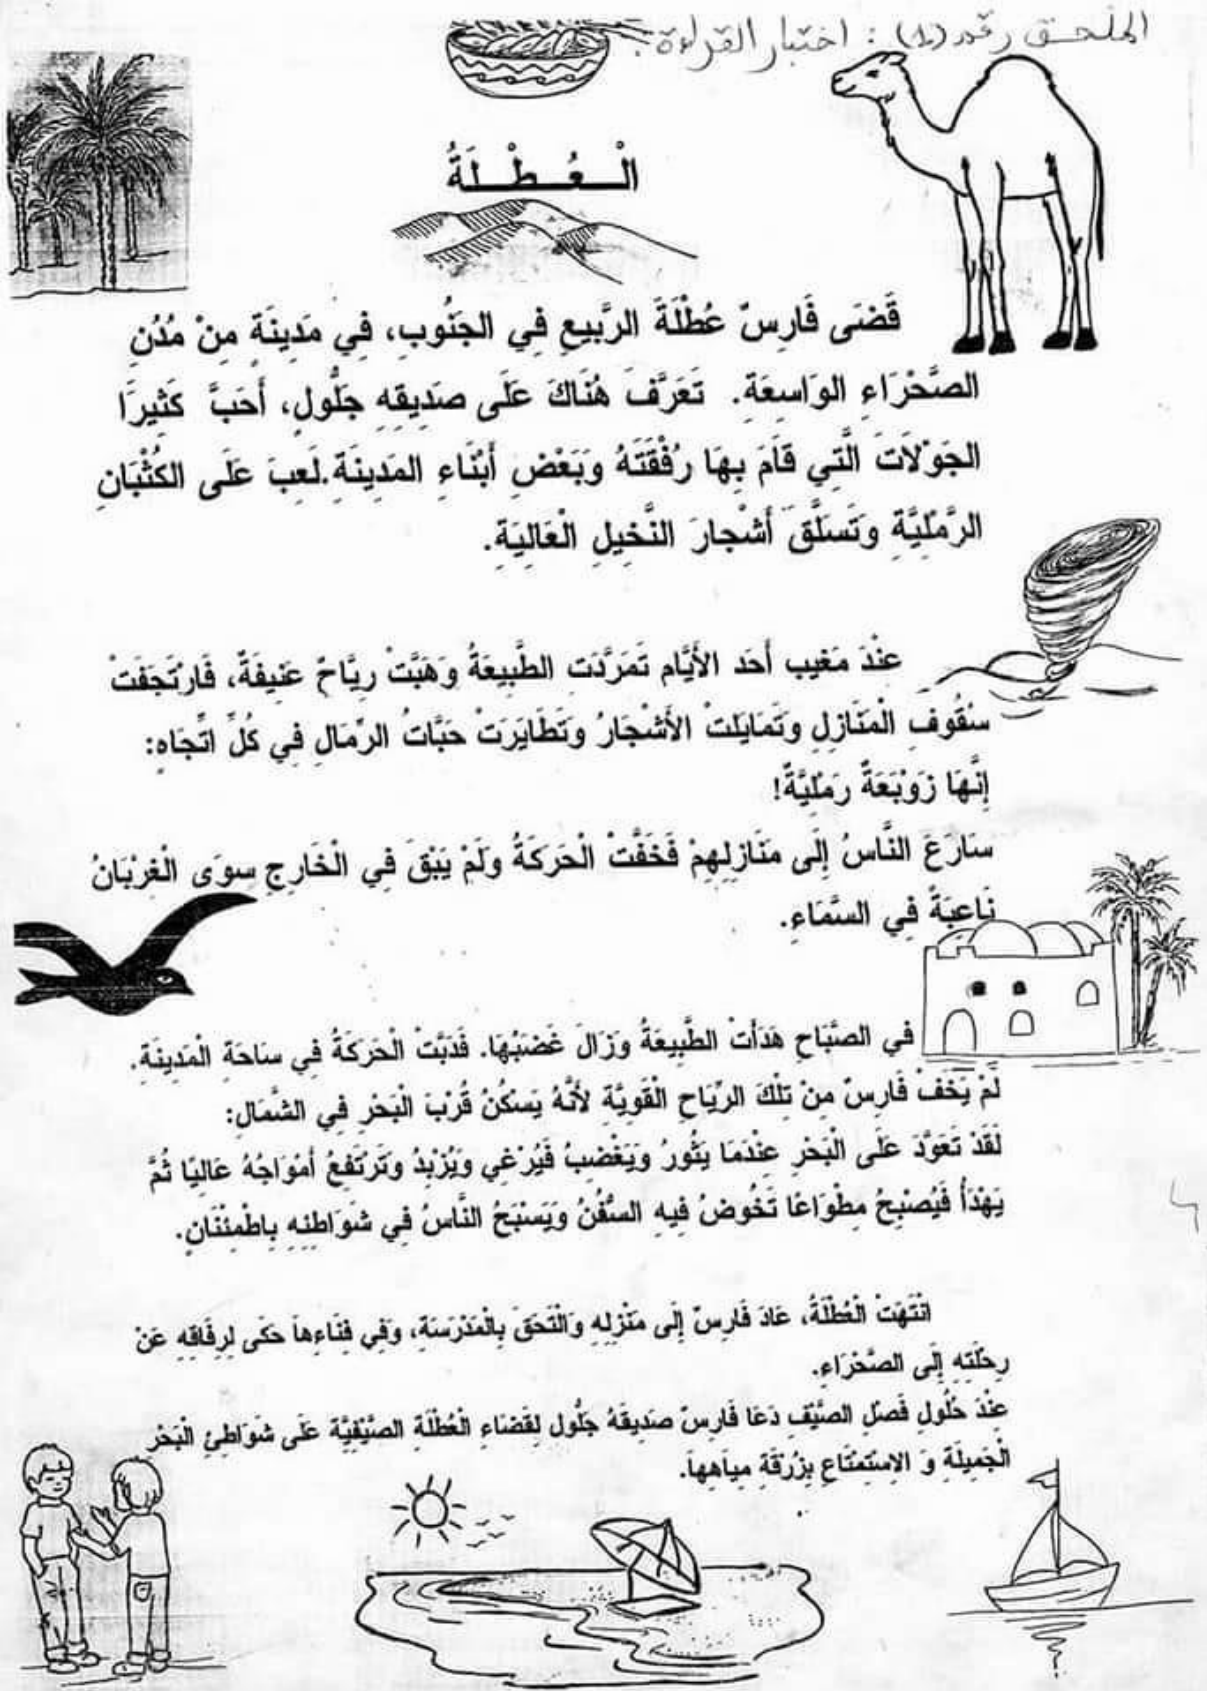 الملحق رقم (1) : اختبار القراءة :
الْعُطْلَةُ
قَضَى فَارِسٌ عُطْلَةَ الرَّبِيعِ فِي الجَنُوبِ، فِي مَدِينَةٍ مِنْ مُدُنِ
الصَّحْرَاءِ الوَاسِعَةِ. تَعَرَّفَ هُنَاكَ عَلَى صَدِيقِهِ جَلُّولٍ، أَحَبَّ كَثِيرًا
الجَوْلَاتَ الَّتِي قَامَ بِهَا رُفْقَتَهُ وَبَعْضِ أَبْنَاءِ المَدِينَةِ.لَعِبَ عَلَى الكُثْبَانِ
الرَّمْلِيَّةِ وَتَسَلَّقَ أَشْجارَ النَّخِيلِ الْعَالِيَةِ.
عِنْدَ مَغِيبِ أَحَدِ الأَيَّامِ تَمَرَّدَتِ الطَّبِيعَةُ وَهَبَّتْ رِيَّاحٌ عَنِيفَةٌ، فَارْتَجَفَتْ
سُقُوفِ الْمَنَازِلِ وَتَمَايَلَتْ الأَشْجَارُ وَتَطَايَرَتْ حَبَّاتُ الرِّمَالِ فِي كُلِّ اتِّجَاهٍ:
إِنَّهَا زَوْبَعَةٌ رَمْلِيَّةٌ!
سَارَعَ النَّاسُ إِلَى مَنَازِلِهِمْ فَخَفَّتْ الْحَرَكَةُ وَلَمْ يَبْقَ فِي الْخَارِجِ سِوَى الْغِرْبَانُ
نَاعِبَةً فِي السَّمَاءِ.
فِي الصَّبَاحِ هَدَأَتْ الطَّبِيعَةُ وَزَالَ غَضَبُهَا. فَدَبَّتْ الْحَرَكَةُ فِي سَاحَةِ الْمَدِينَةِ.
لَمْ يَخَفْ فَارِسٌ مِنْ تِلْكَ الرِّيَاحِ الْقَوِيَّةِ لأَنَّهُ يَسْكُنُ قُرْبَ الْبَحْرِ فِي الشَّمَالِ:
لَقَدْ تَعَوَّدَ عَلَى الْبَحْرِ عِنْدَمَا يَثُورُ وَيَغْضِبُ فَيُرْغِي وَيُزْبِدُ وَتَرْتَفِعُ أَمْوَاجُهُ عَالِيًا ثُمَّ
يَهْدَأُ فَيُصْبِحُ مِطْوَاعًا تَخُوضُ فِيهِ السُّفُنُ وَيَسْبَحُ النَّاسُ فِي شَوَاطِئِهِ بِاطْمِئْنَانٍ.
انْتَهَتْ الْعُطْلَةُ، عَادَ فَارِسٌ إِلَى مَنْزِلِهِ وَالْتَحَقَ بِالْمَدْرَسَةِ، وَفِي فِنَاءِهاَ حَكَى لِرِفَاقِهِ عَنْ
رِحْلَتِهِ إِلَى الصَّحْرَاءِ.
عِنْدَ حُلُولِ فَصْلِ الصَّيْفِ دَعَا فَارِسٌ صَدِيقَهُ جَلُّول لِقَضَاءِ الْعُطْلَةِ الصَّيْفِيَّةِ عَلَى شَوَاطِئِ الْبَحْرِ
الْجَمِيلَةِ وَ الاِسْتِمْتَاعِ بِزُرْقَةِ مِيَاهِهاَ.